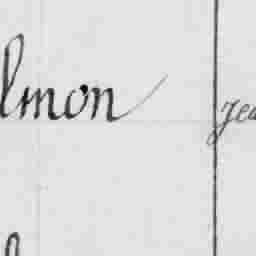 lmon yea